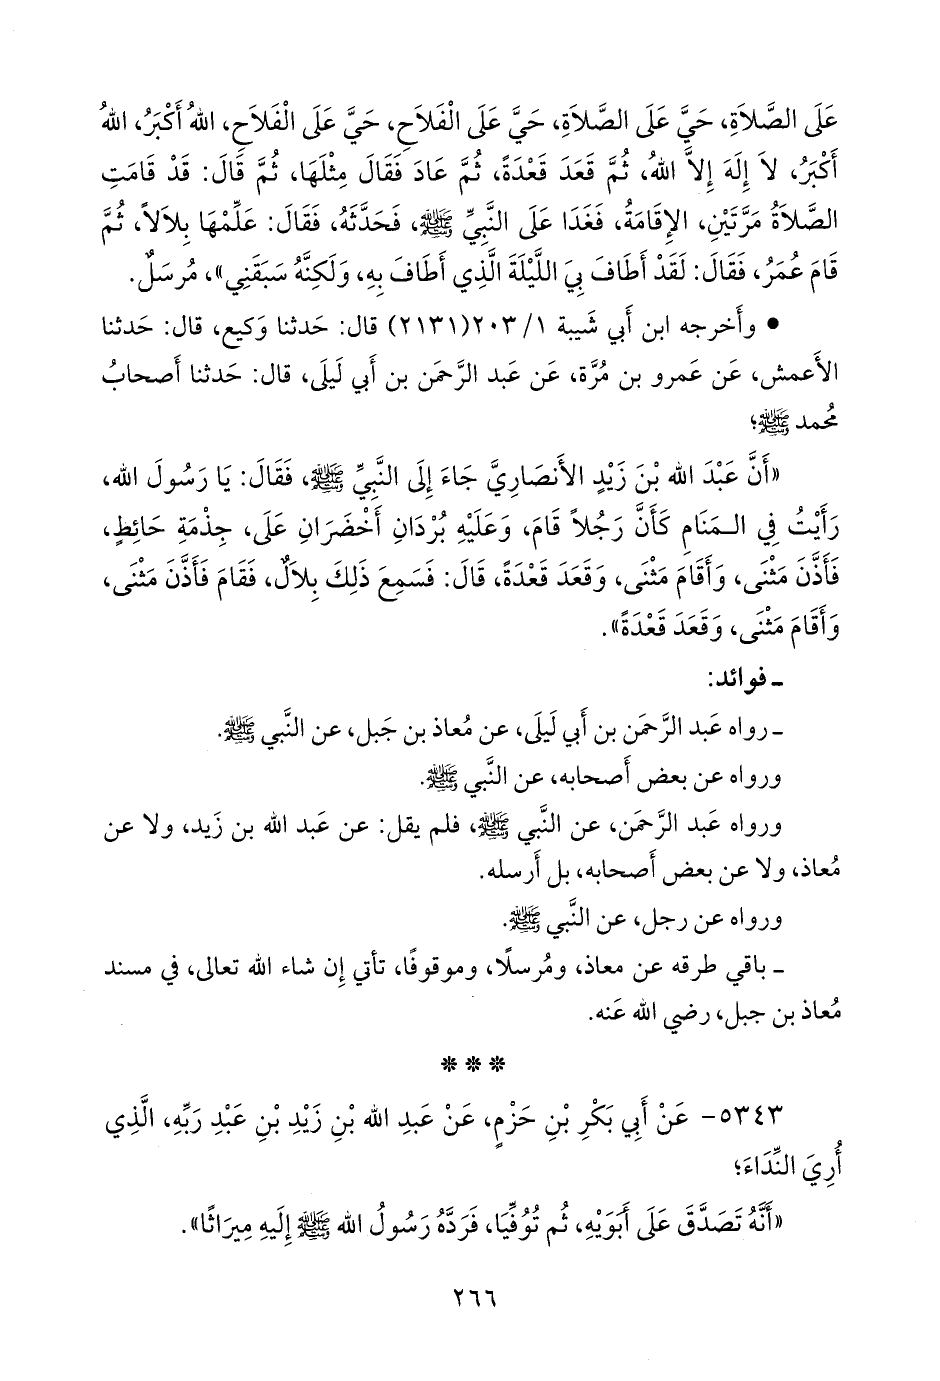 عَلَى الصَّلاَةِ، حَيَّ عَلَى الصَّلاَةِ، حَيَّ عَلَى الْفَلاَحِ، حَيَّ عَلَى الْفَلاَحِ، اللهُ أَكْبَرُ، اللهُ
أَكْبَرُ، لاَ إِلَهَ إِلاَّ اللهُ، ثُمَّ قَعَدَ قَعْدَةً، ثُمَّ عَادَ فَقَالَ مِثْلَهَا، ثُمَّ قَالَ: قَدْ قَامَتِ
الصَّلاَةُ مَرَّتَيْنِ، الإِقَامَةُ، فَغَدَا عَلَى النَّبِيِّ ﷺ، فَحَدَّثَهُ، فَقَالَ: عَلِّمْهَا بِلاَلاً، ثُمَّ
قَامَ عُمَرُ، فَقَالَ: لَقَدْ أَطَافَ بِيَ اللَّيْلَةَ الَّذِي أَطَافَ بِهِ، وَلَكِنَّهُ سَبَقَنِي»، مُرسَلٌ.
• وأَخرجه ابن أَبي شَيبة ١/ ٢٠٣(٢١٣١) قال: حَدثنا وَكيع، قال: حَدثنا
الأَعمش، عَن عَمرو بن مُرَّة، عَن عَبد الرَّحمَن بن أَبي لَيلَى، قال: حَدثنا أَصحابُ
مُحمد ﷺ؛
«أَنَّ عَبْدَ الله بْنَ زَيْدٍ الأَنصَارِيَّ جَاءَ إِلَى النَّبِيِّ ﷺ، فَقَالَ: يَا رَسُولَ الله،
رَأَيْتُ فِي الـمَنَامِ كَأَنَّ رَجُلاً قَامَ، وَعَلَيْهِ بُرْدَانِ أَخْضَرَانِ عَلَى، جِذْمَةِ حَائِطٍ،
فَأَذَّنَ مَثْنَى، وَأَقَامَ مَثْنَى، وَقَعَدَ قَعْدَةً، قَالَ: فَسَمِعَ ذَلِكَ بِلاَلٌ، فَقَامَ فَأَذَّنَ مَثْنَى،
وَأَقَامَ مَثْنَى، وَقَعَدَ قَعْدَةً».
ـ فوائد:
ـ رواه عَبد الرَّحمَن بن أَبي لَيلَى، عن مُعاذ بن جَبل، عن النَّبي ﷺ.
ورواه عن بعض أَصحابه، عن النَّبي ﷺ.
ورواه عَبد الرَّحمَن، عن النَّبي ﷺ، فلم يقل: عن عَبد الله بن زَيد، ولا عن
مُعاذ، ولا عن بعض أَصحابه، بل أَرسله.
ورواه عن رجل، عن النَّبي ﷺ.
ـ باقي طرقه عن معاذ، ومُرسلًا، وموقوفًا، تأتي إِن شاء الله تعالى، في مسند
مُعاذ بن جبل، رضي الله عَنه.
* * *
٥٣٤٣- عَنْ أَبِي بَكْرِ بْنِ حَزْمٍ، عَنْ عَبدِ الله بْنِ زَيْدِ بْنِ عَبْدِ رَبِّهِ، الَّذِي
أُرِيَ النِّدَاءَ؛
«أَنَّهُ تَصَدَّقَ عَلَى أَبَوَيْهِ، ثُم تُوُفِّيَا، فَرَدَّهُ رَسُولُ الله ﷺ إِلَيهِ مِيرَاثًا».
٢٦٦